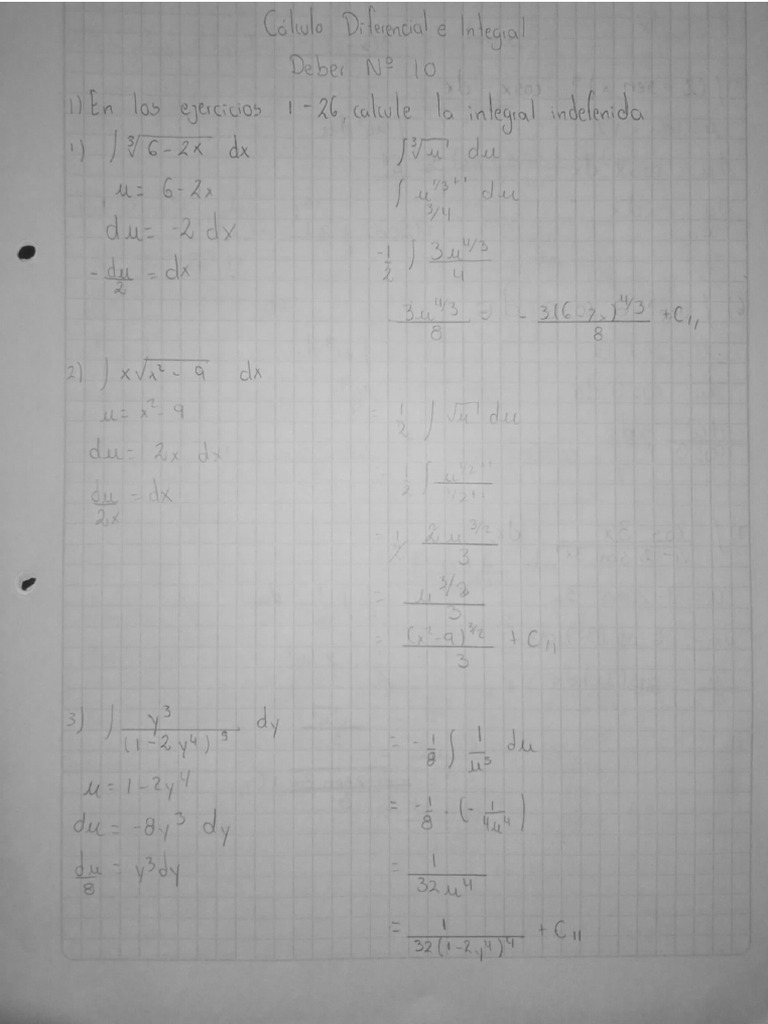 Cálculo Diferencial e Integral
Deber Nº 10
1) En los ejercicios 1-26, calcule la integral indefenida
1) ∫ ∛(6-2x) dx
u = 6-2x
du = -2 dx
-du/2 = dx
∫ ∛u du
∫ u^(1/3+1) / (3/4) du
-1/2 ∫ 3u^(4/3) / 4
3u^(4/3) / 8 = - 3(6 )^(4/3) / 8 + C//
2) ∫ x√(x²-9) dx
u = x²-9
du = 2x dx
du/2x = dx
= 1/2 ∫ √u du
= 1/2 ∫ u^(1/2+1) / (1/2+1)
= 2u^(3/2) / 3
= u^(3/2) / 3
= (x²-9)^(3/2) / 3 + C//
3) ∫ y³ / (1-2y⁴)⁵ dy
u = 1-2y⁴
du = -8y³ dy
du/8 = y³dy
= -1/8 ∫ 1/u⁵ du
= -1/8 · (-1/4u⁴)
= 1 / 32u⁴
= 1 / 32(1-2y⁴)⁴ + C//